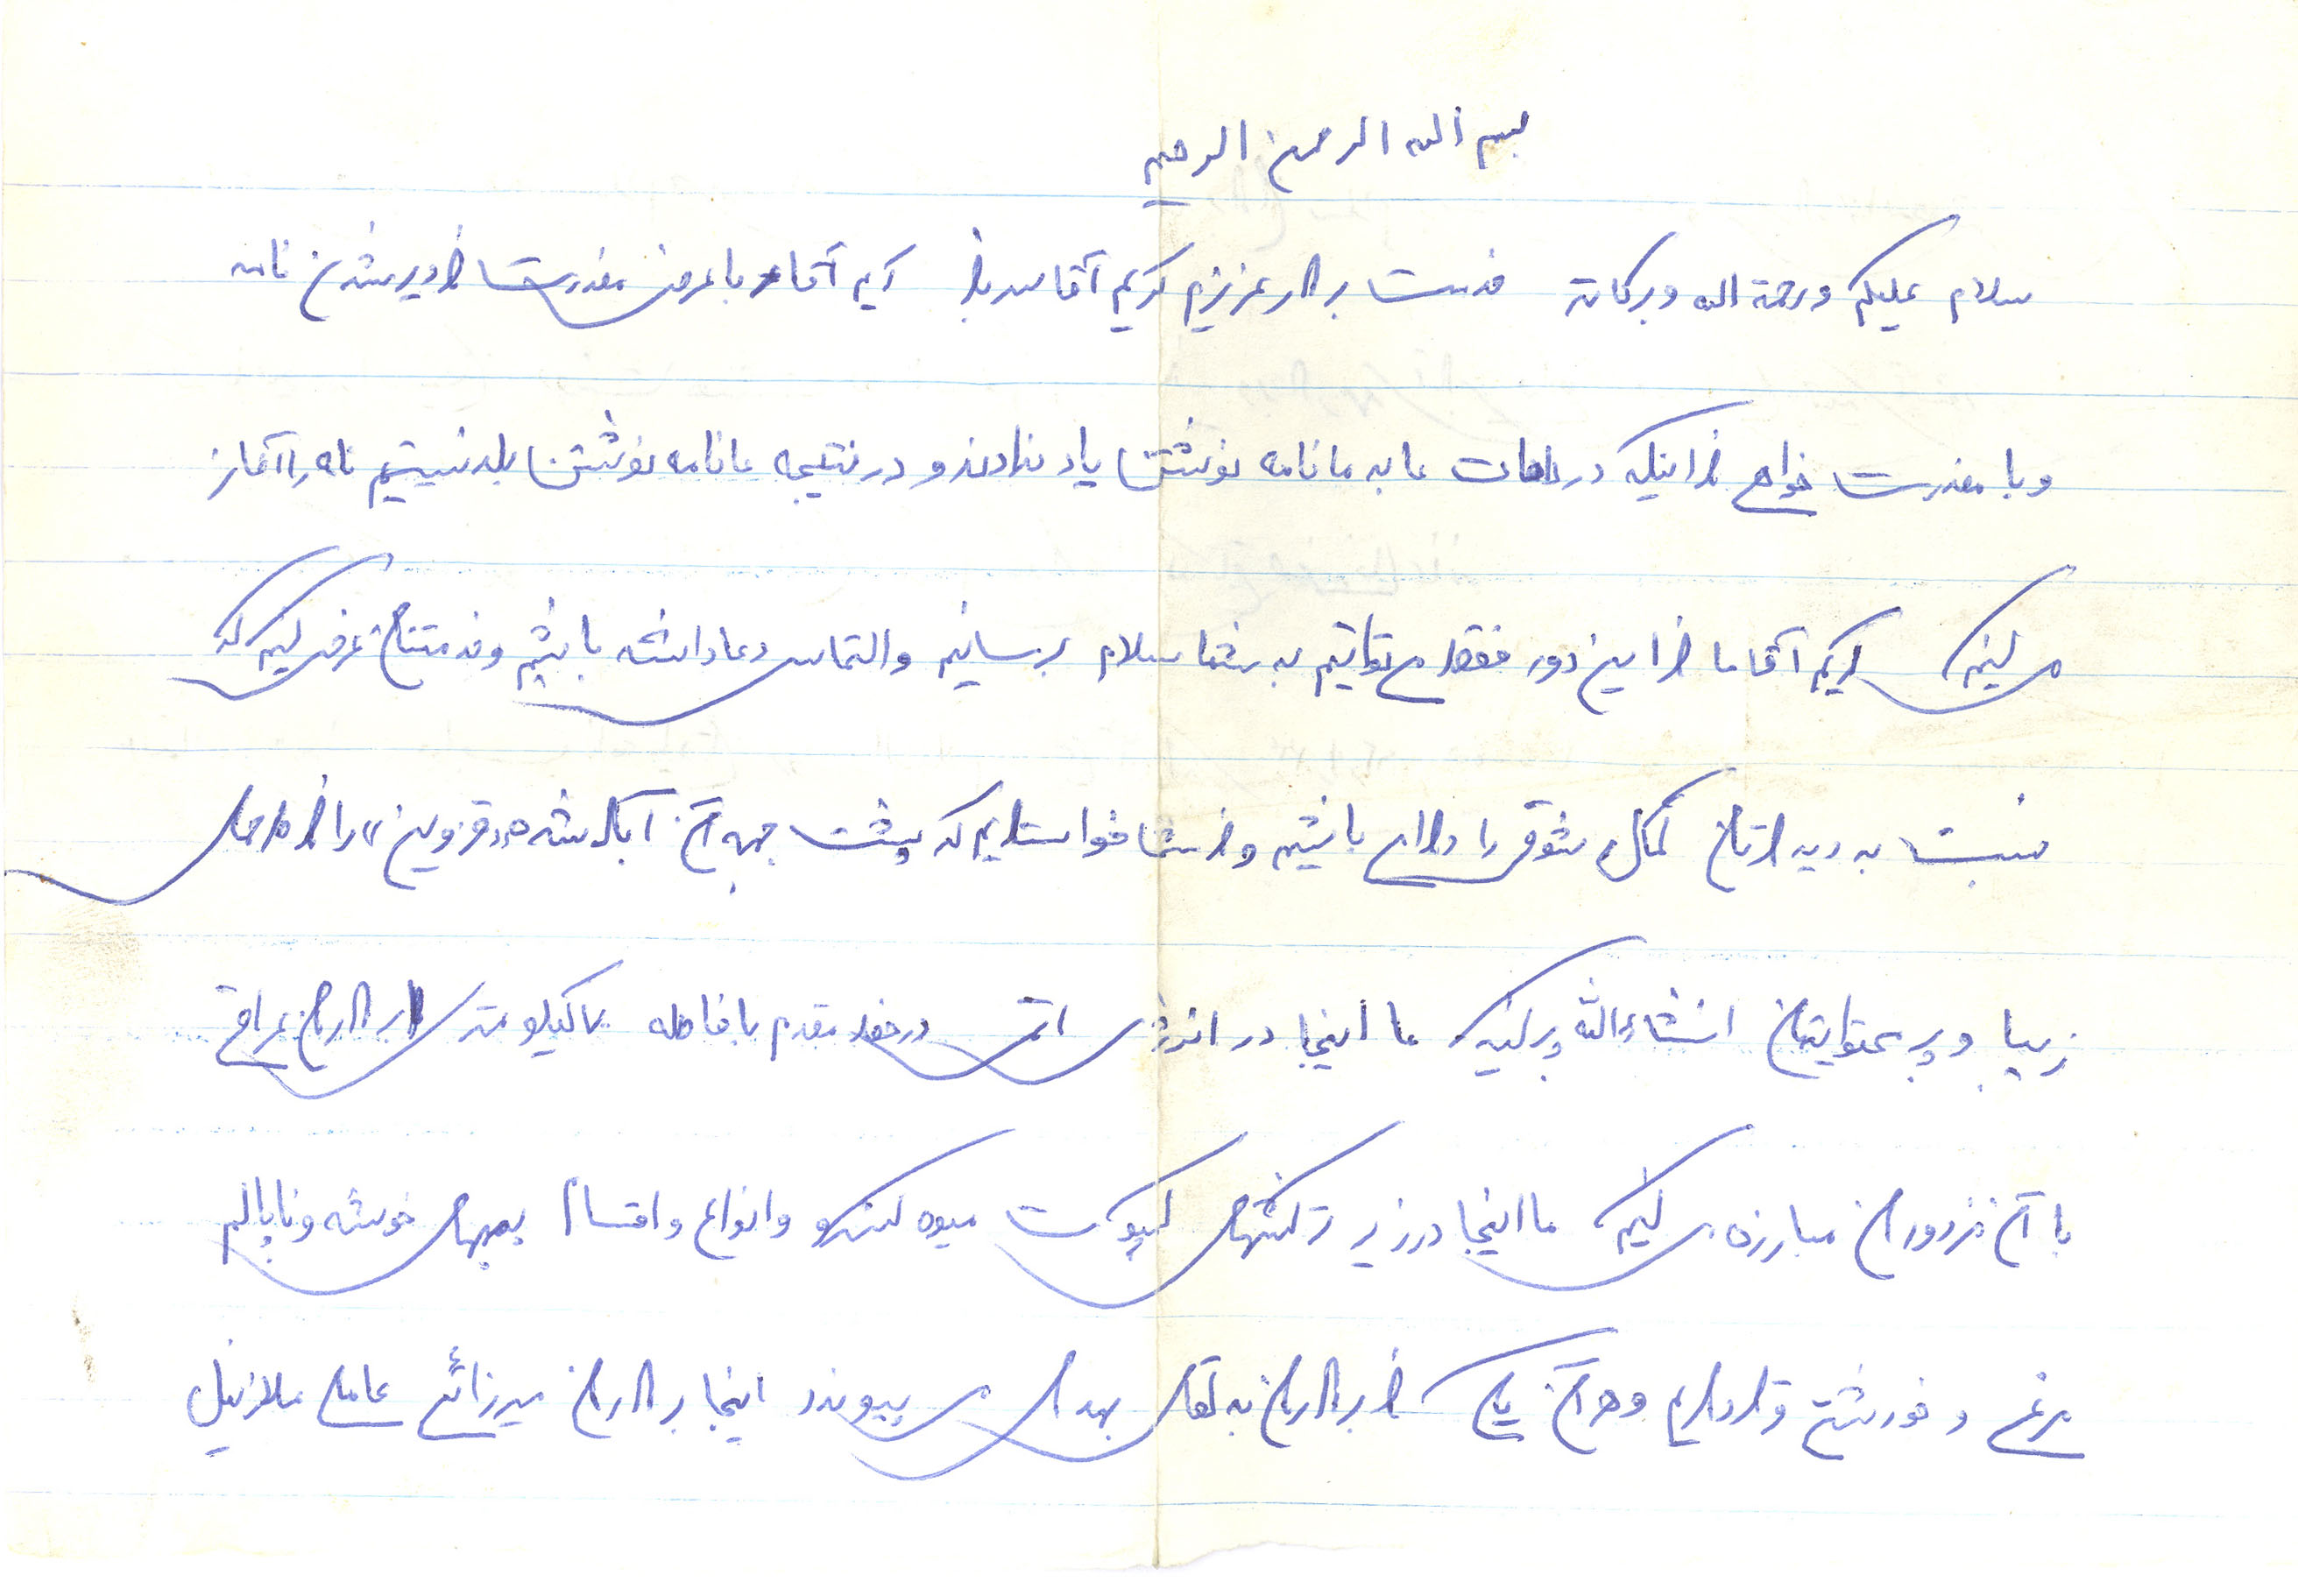 بسم الله الرحمن الرحیم
سلام علیکم و رحمة الله و برکاته خدمت برادر عزیزم کریم آقا سرباز کریم آقا با عرض معذرت از دیر شدن نامه
و با معذرت خواهی از اینکه در دهات ما به ما نامه نوشتن یاد ندادند و در نتیجه ما نامه نوشتن بلد نیستیم نامه را آغاز
می کنیم کریم آقا ما از این دور فقط می توانیم به شما سلام برسانیم و التماس دعا داشته باشیم و خدمتتان عرض کنیم که
نسبت به دیدارتان کمال شوق را دارا می باشیم و از شما خواستاریم که پشت جبهه آن آباد شده «قزوین» را از مدحهای
زیبا و پر محتوایتان انشاءالله پر کنید ما اینجا در انرژی اتمی در خط مقدم با فاصله کیلومتر از برادران عراقی
با آن مزدوران مبارزه می کنیم ما اینجا در زیر ترکشهای کمپوت میوه کنسرو و انواع و اقسام بمبهای خوشه و ناپالم
مرغی و خورشتی قرار داریم و هر آن یکی از برادران به لقای می پیوندد اینجا برادران میرزائی عاملی ملانیل